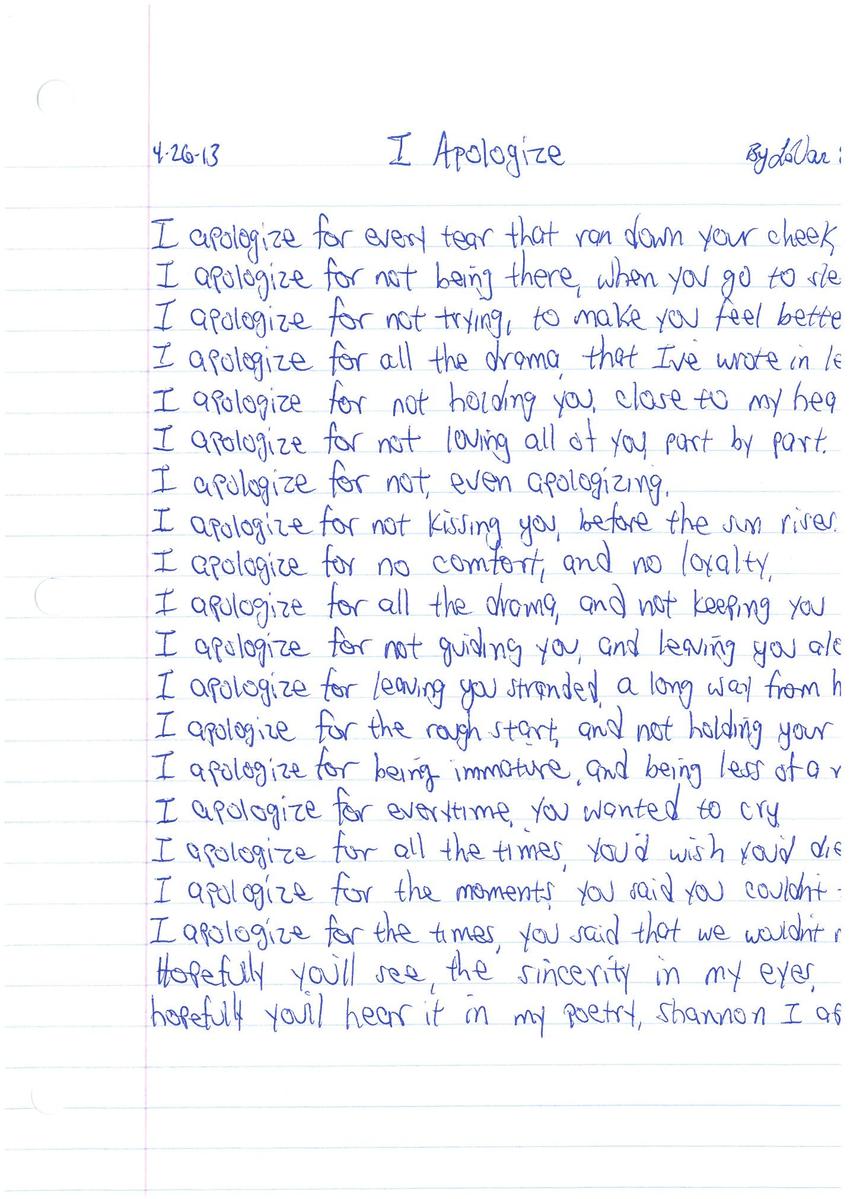 4-26-13 I Apologize By LaVar
I apologize for every tear that ran down your cheek,
I apologize for not being there, when you go to sle
I apologize for not trying, to make you feel bette
I apologize for all the drama, that I've wrote in le
I apologize for not holding you, close to my hea
I apologize for not loving all of you, part by part.
I apologize for not, even apologizing,
I apologize for not kissing you, before the sun rises.
I apologize for no comfort, and no loyalty,
I apologize for all the drama, and not keeping you
I apologize for not guiding you, and leaving you alo
I apologize for leaving you stranded, a long way from h
I apologize for the rough start, and not holding your
I apologize for being immature, and being less of a
I apologize for everytime, you wanted to cry
I apologize for all the times, you'd wish you'd die
I apologize for the moments, you said you couldn't
I apologize for the times, you said that we wouldn't
Hopefully you'll see, the sincerity in my eyes,
hopefully you'll hear it in my poetry, shannon I